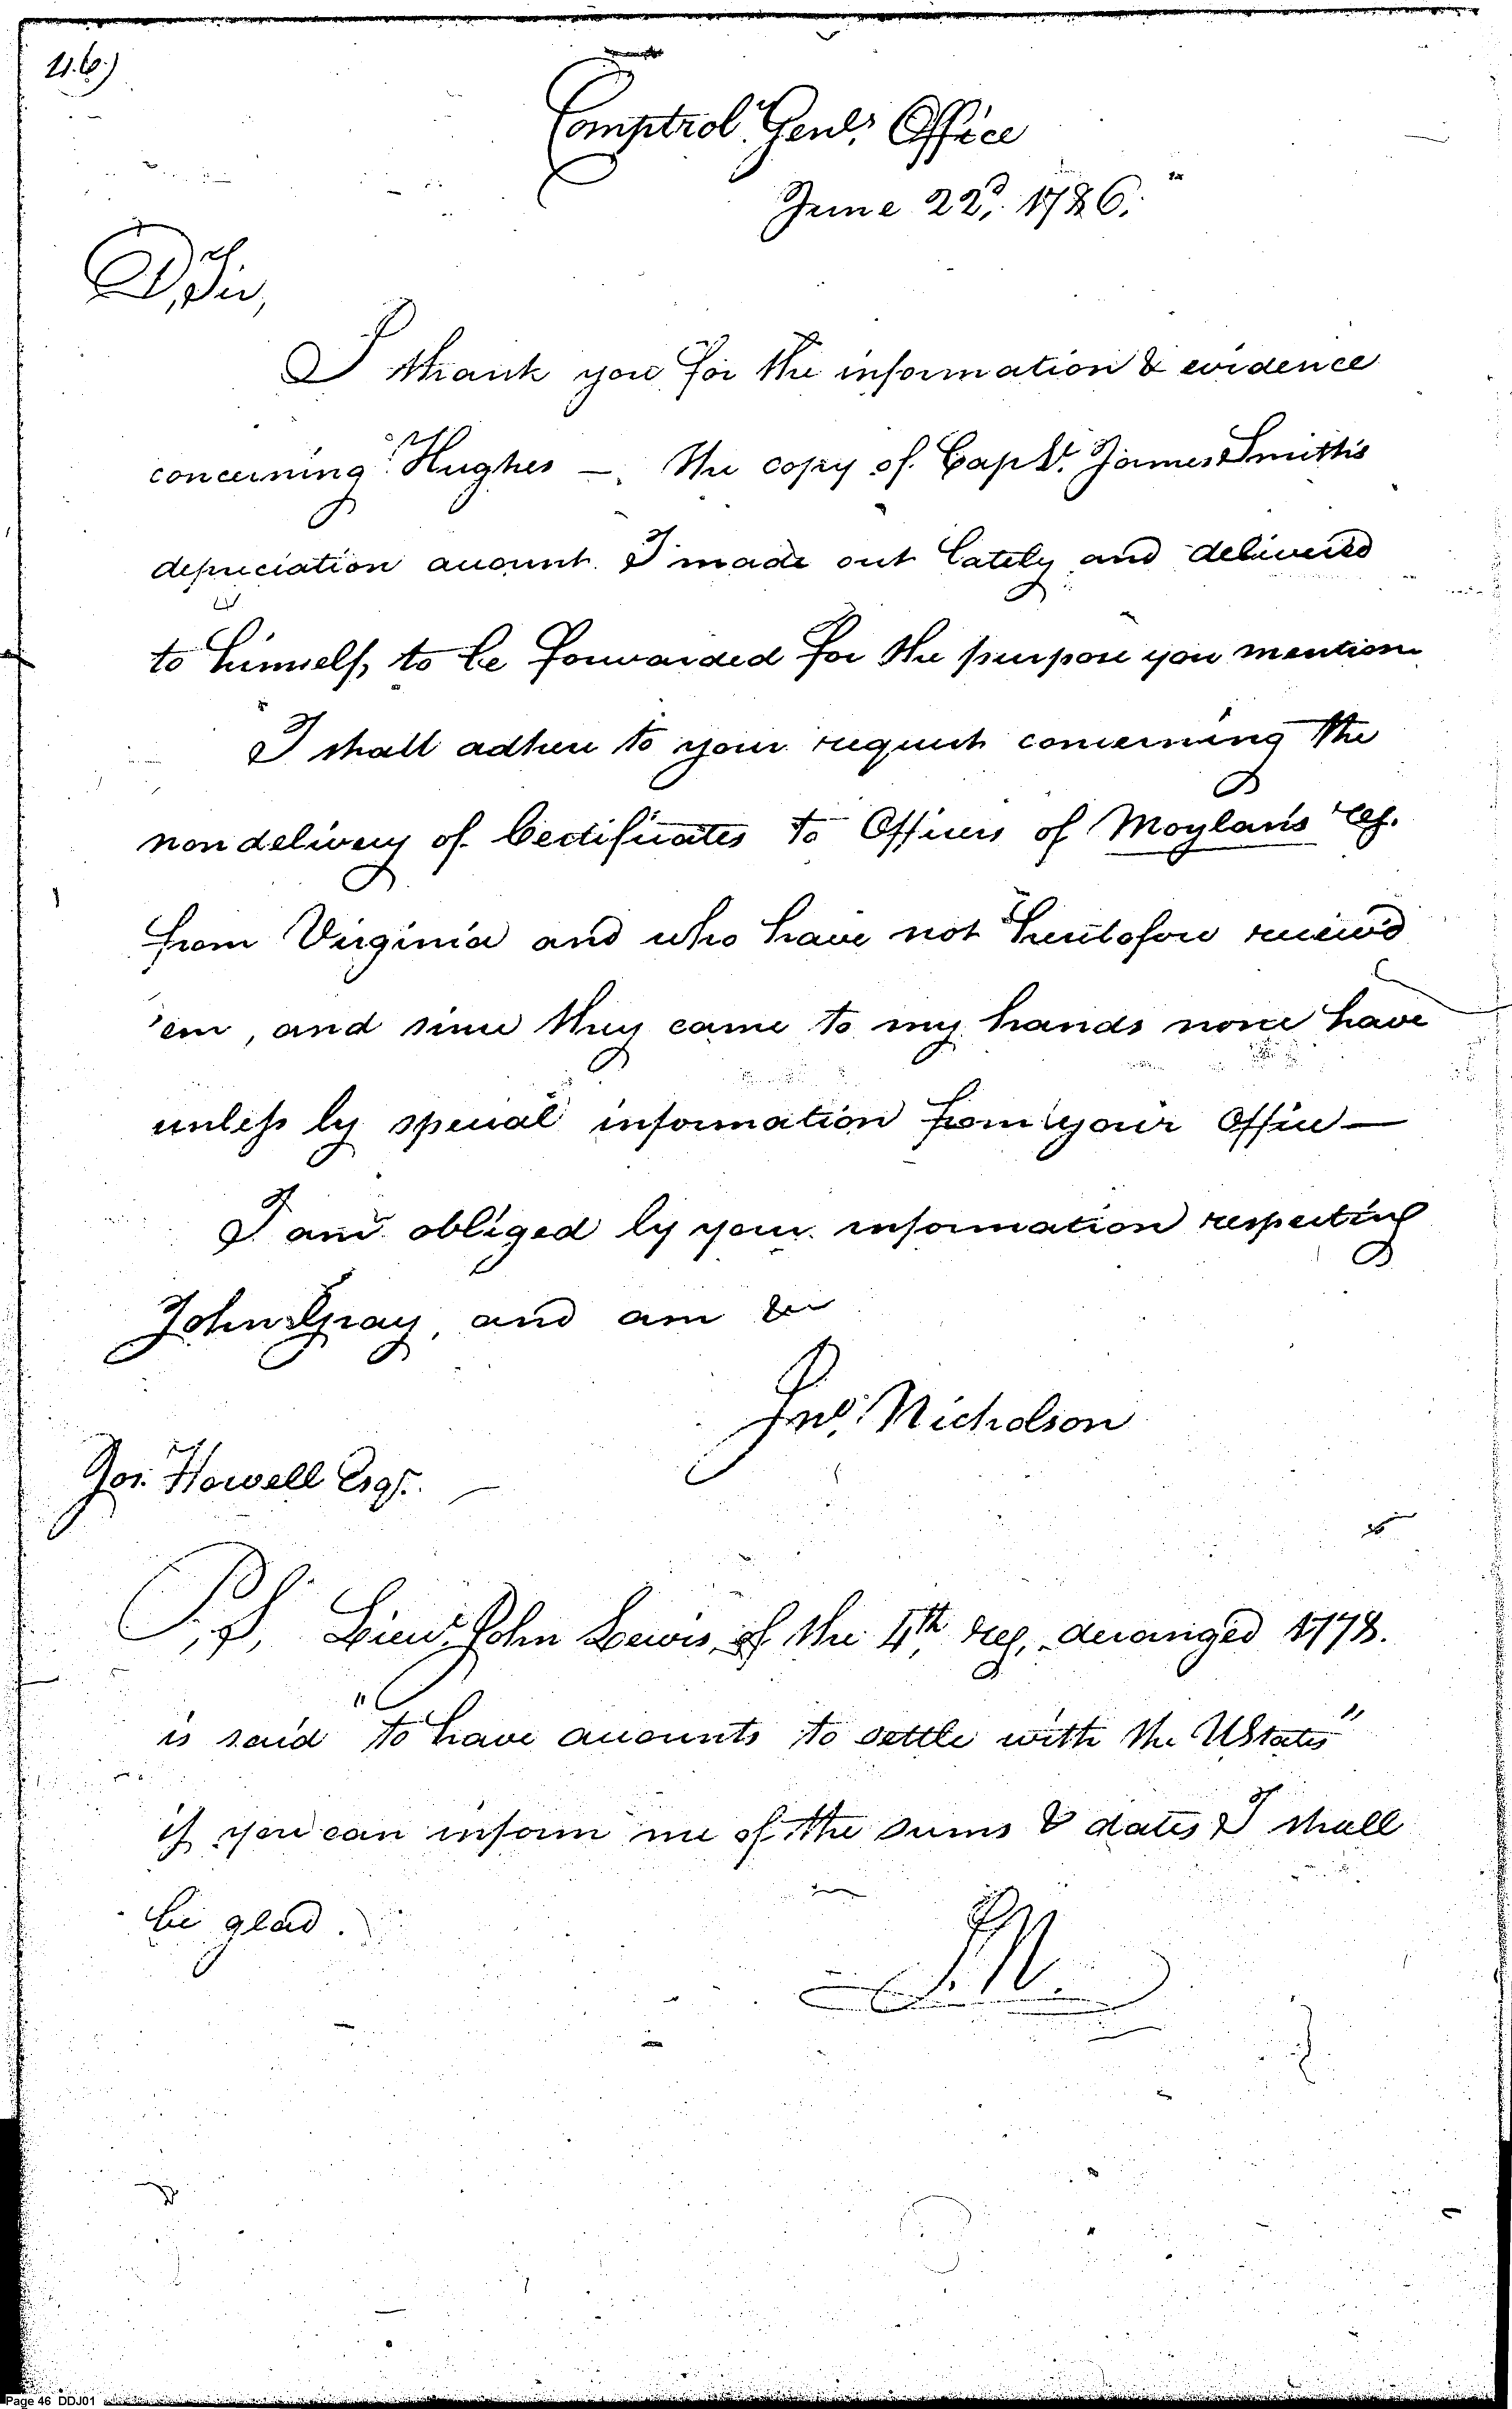 46.)
Comptrol.r Genl.s Office
June 22.d 1786.
D.r Sir,
I thank you for the information & evidence
concerning Hughes — The copy of Capt.n James Smith's
depreciation account I made out lately and delivered
to himself, to be forwarded for the purpose you mention
I shall adhere to your request concerning the
non delivery of Certificates to Officers of Moylan's reg.
from Virginia and who have not heretofore receiv'd
'em, and since they came to my hands none have
unless by special information from your Office —
I am obliged by your information respecting
John Gray, and am &c
Jn.o Nicholson
Jos. Howell Esqr.
P.S. Lieu.t John Lewis of the 4th reg. deranged 1778.
is said "to have accounts to settle with the UStates"
if you can inform me of the sums & dates I shall
be glad.
J.N.
Page 46 DDJ01